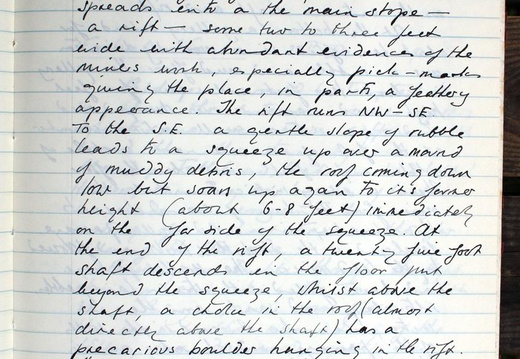 spreads into a the main stope —
a rift — some two to three feet
wide with abundant evidences of the
miners work, especially pick-marks
giving the place, in parts, a feathery
appearance. The rift runs NW-SE.
To the S.E. a gentle slope of rubble
leads to a squeeze up over a mound
of muddy debris, the roof coming down
low but soars up again to it's former
height (about 6-8 feet) immediately
on the far side of the squeeze. At
the end of the rift, a twenty five foot
shaft descends in the floor just
beyond the squeeze, whilst above the
shaft, a choke in the roof (almost
directly above the shaft) has a
precarious boulder hanging in the rift.